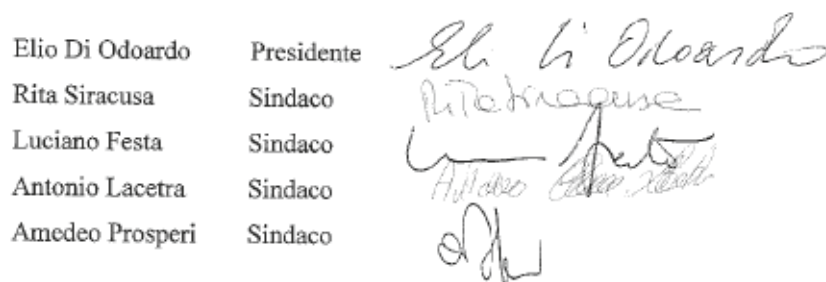 Elio Di Odoardo Presidente Eli Di Odoardo
Rita Siracusa Sindaco Rita Siracusa
Luciano Festa Sindaco
Antonio Lacetra Sindaco
Amedeo Prosperi Sindaco